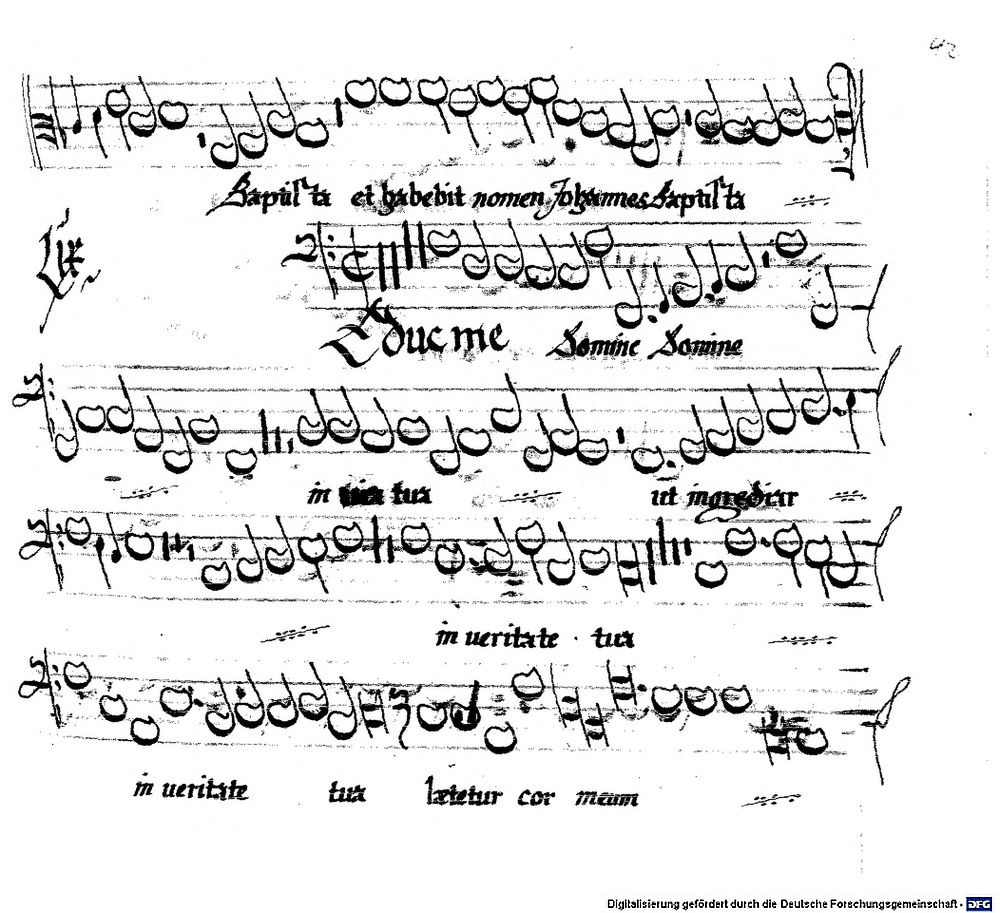 42
Baptista et habebit nomen Johannes Baptista
Lix
Educ me Domine Domine
in via tua ut ingrediar
in ueritate tua
in ueritate tua lætetur cor meum
Digitalisierung gefördert durch die Deutsche Forschungsgemeinschaft - DFG